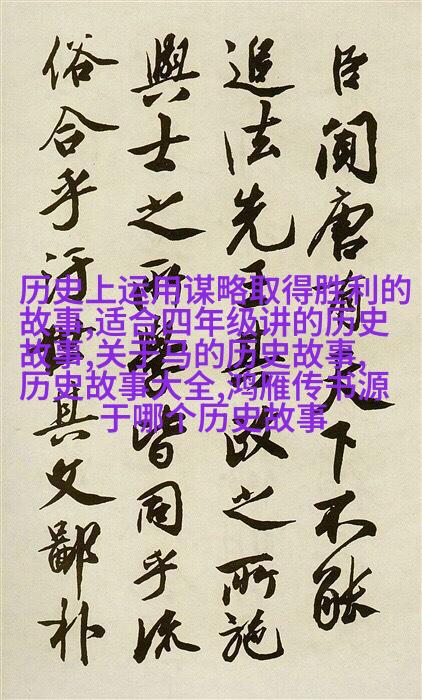 臣聞唐天下不能
追法先王政之所施
與士之所學皆同乎流
俗合乎汙其文鄙朴
历史上运用谋略取得胜利的
故事,适合四年级讲的历史
故事,关于马的历史故事,
历史故事大全,鸿雁传书源
于哪个历史故事